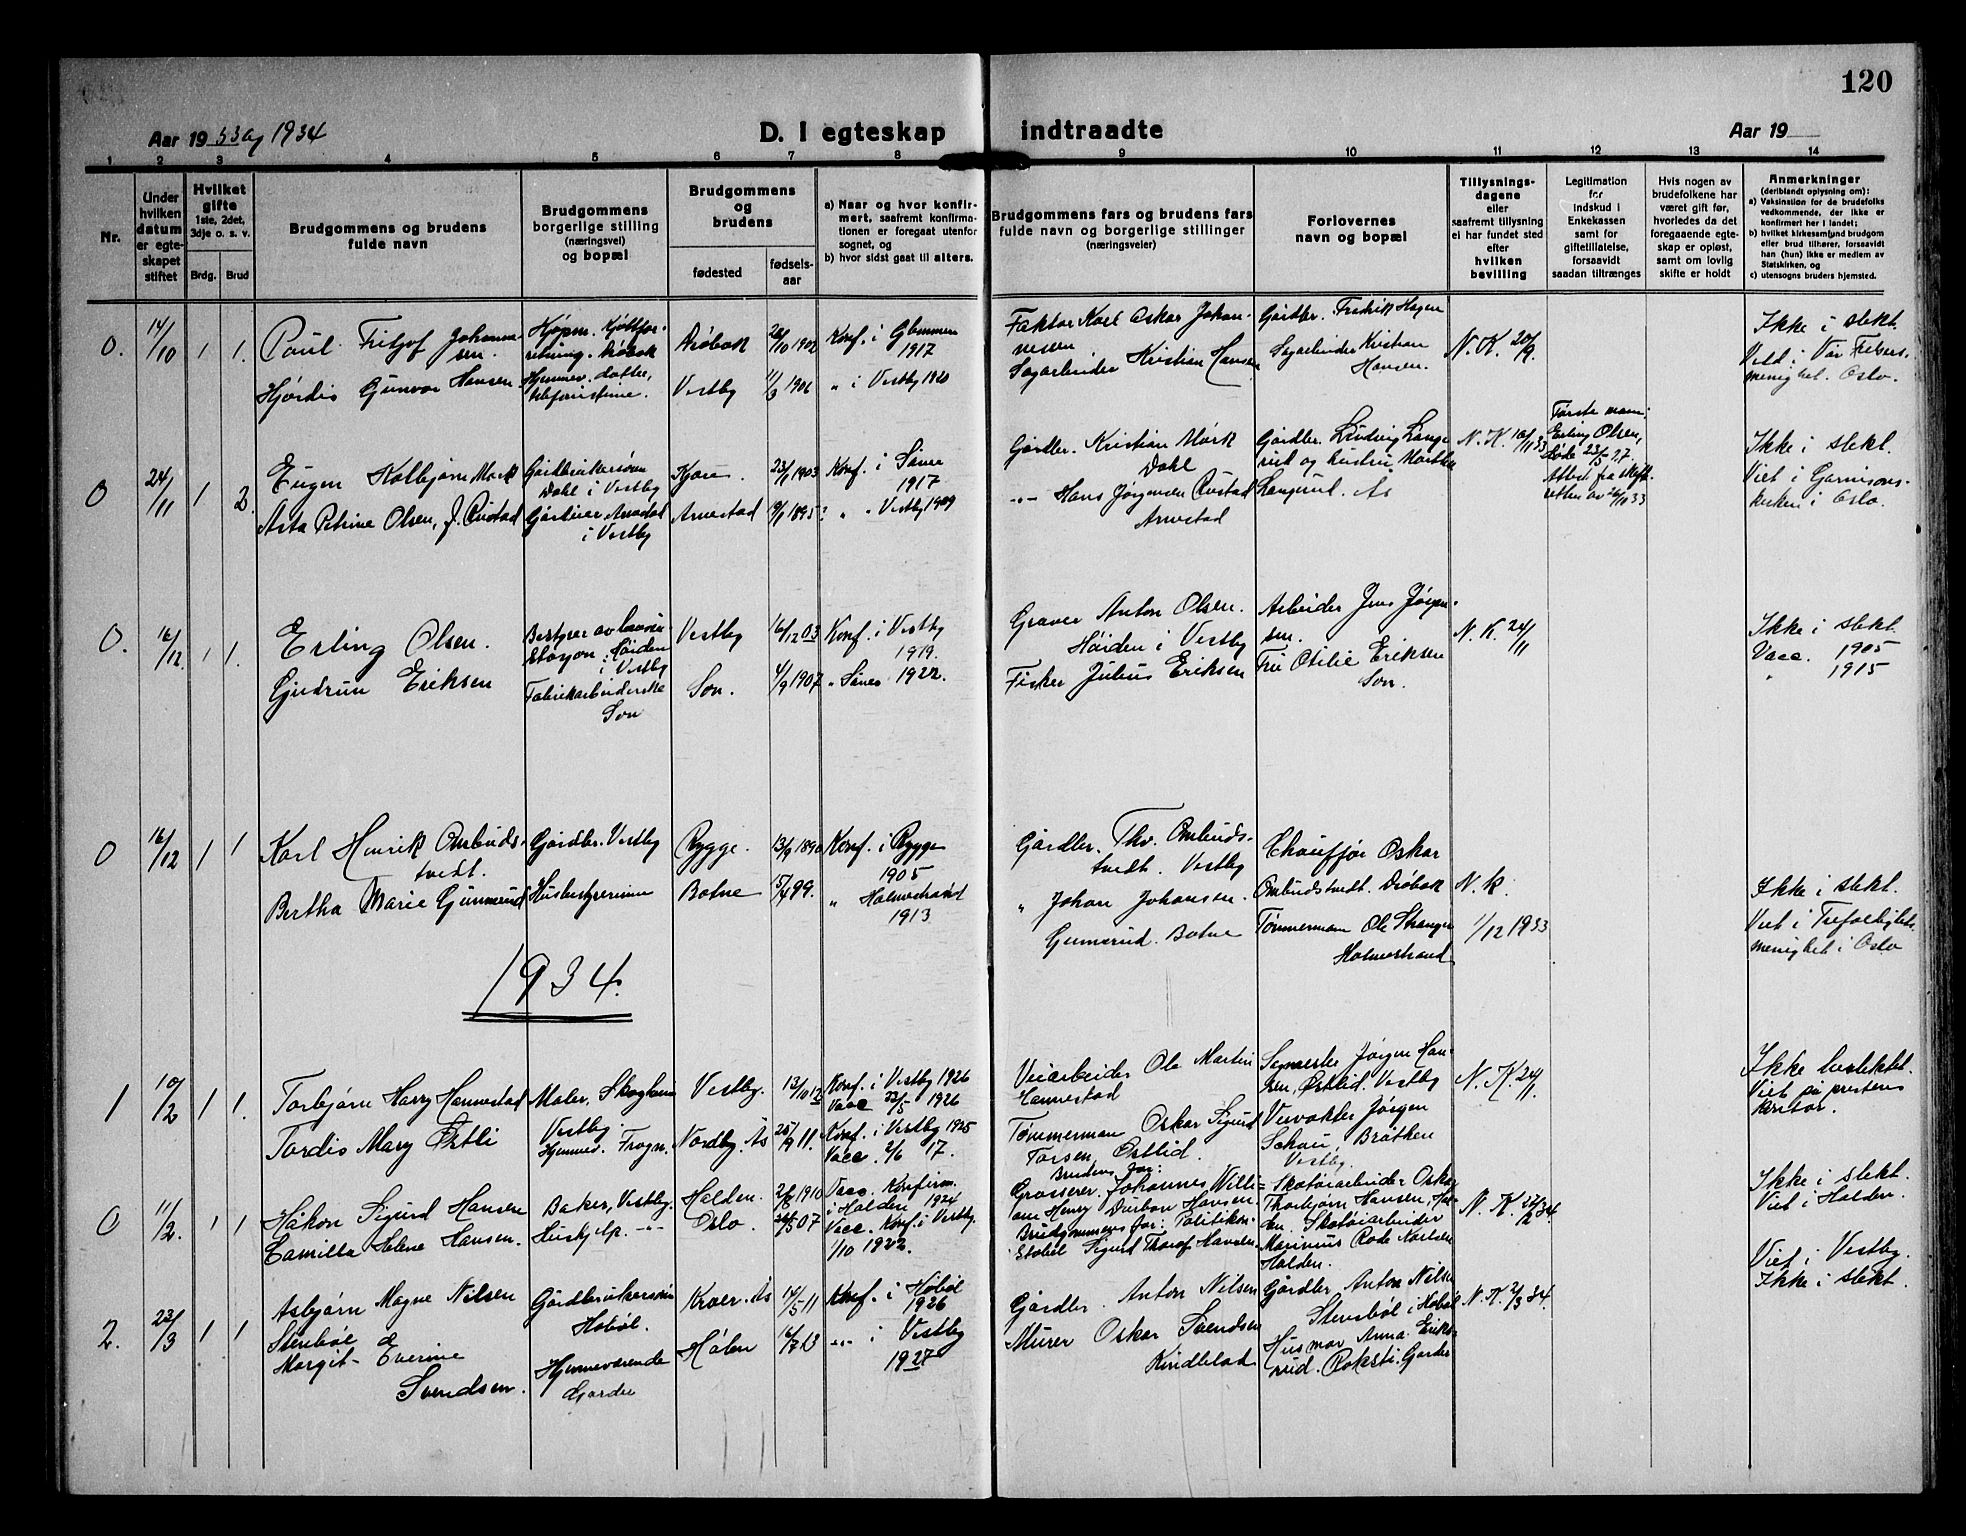 120
Aar 19 33 og 1934
D. I egteskap indtraadte
Aar 19
1 2 3 4 5 6 7 8 9 10 11 12 13 14
Nr.
Under hvilken datum er egteskapet stiftet
Hvilket gifte
1ste, 2det, 3dje o. s. v.
Brdg. Brud
Brudgommens og brudens fulde navn
Brudgommens borgerlige stilling (næringsvei) og bopæl
Brudgommens og brudens
fødested
fødselsaar
a) Naar og hvor konfirmert, saafremt konfirmationen er foregaat utenfor sognet, og
b) hvor sidst gaat til alters.
Brudgommens fars og brudens fars fulde navn og borgerlige stillinger (næringsveier)
Forlovernes navn og bopæl
Tillysningsdagene eller saafremt tillysning ei har fundet sted efter hvilken bevilling
Legitimation for indskud i Enkekassen samt for giftetillatelse, forsaavidt saadan tiltrænges
Hvis nogen av brudefolkene har været gift før, hvorledes da det foregaaende egteskap er opløst, samt om lovlig skifte er holdt
Anmerkninger
(deriblandt oplysning om):
a) Vaksination for de brudefolks vedkommende, der ikke er konfirmert her i landet;
b) hvilket kirkesamfund brudgom eller brud tilhører, forsaavidt han (hun) ikke er medlem av Statskirken, og
c) utensogns bruders hjemsted.
0. 14/10 1 1. Paul Fritjof Johannesen. Drøbak 1902 Konf. i Glemmen 1917
Hjørdis Gunvor Hansen Hjemmev. datter, telefonistinne. Vestby 1906 " i Vestby 1920
Faktor Karl Oskar Johannessen
Sagarbeider Kristian Hansen
Gårdbr. Fredrik Hagen
Sagarbeider Kristian Hansen.
N. K. 20/9.
Ikke i slekt.
Viet i Vår Frelsers menighet. Oslo.
0 24/11 1 2. Eugen Kolbjørn Mørk Gårdbrukersønn Dahl i Vestby 1903 Konf. i Såner 1917
Asta Petrine Olsen, f. Rustad Arnestad i Vestby Arnestad 1895 " " Vestby 1909
Gårdbr. Kristian Mørk Dahl
-"- Hans Jørgensen Rustad Arnestad
Gårdbr. Ludvig Langerud og hustru, Marthe Langerud. Ås
N. K. 16/11 33
Første mann: Erling Olsen, døde 23/5 27. Attest fra skifteretten av 26/10 33
Ikke i slekt.
Viet i Garnisonskirken i Oslo.
0. 16/12 1 1. Erling Olsen. Bestyrer av i Vestby Vestby 16/12 03 Konf. i Vestby 1919.
Gudrun Eriksen Fabrikarbeiderske Son Son. 4/9 1907 " Såner 1922.
Graver Anton Olsen. i Vestby
Fisker Julius Eriksen
Arbeider Jens Jørgensen.
Fru Otilie Eriksen Son.
N. K. 24/11
Ikke i slekt.
Vacc. 1905
" 1915
0 16/12 1 1 Karl Henrik Ombudstvedt. Gårdbr. Vestby Rygge. 13/9 1890 Konf. i Rygge 1905
Bertha Marie Gunnerud Husbestyrerinne Botne 15/4 99. " Holmestrand 1913
Gårdbr. Thv. Ombudstvedt. Vestby
" Johan Johansen Gunnerud. Botne
Chauffør Oskar Ombudstvedt. Drøbak
Tømmermann Ole Stranger Holmestrand
N. K. 1/12 1933
Ikke i slekt.
Viet i Trefoldighets menighet i Oslo
1934.
1 10/2 1 1. Torbjørn Harry Hannestad Maler, Skogheim Vestby. Vestby. 13/10 12 Konf. i Vestby 1926 Vacc 22/5 1926
Tordis Mary Østli Hjemmev. Frogn. Nordby. Ås 11. Konf. i Vestby 1925 Vacc. 2/6 17.
Veiarbeider Ole Martin Hannestad
Tømmermann Oskar Sigurd Torsen Østlid.
Jørgen Hansen, Østlid. Vestby
Veivokter Jørgen Schou, Bråthen Vestby.
N. K. 24/1.
Ikke beslektet.
Viet på prestens kontor.
0 11/2. 1 1 Håkon Sigurd Hansen Baker, Vestby. Halden. 1910 Vacc. Konfirm. i Halden 1924
Camilla Helene Hansen. Hushjelp. -"- Oslo. 07 Vacc. Konf. i Vestby. 1/10 1922.
Brudens far:
Grosserer. Johannes William Henry Durban Hansen.
Brudgommens far: Politikonstabel Sigurd Thoralf Hansen.
Skotøiarbeider Oskar Thorbjørn Hansen, Halden. Skotøiarbeider Marinius Rode Karlsen Halden.
N. K. 34.
Ikke i slekt.
Viet i Halden.
2. 23/3 1 1 Asbjørn Magne Nilsen Stenbøl & Gårdbrukersønn Hobøl. Kroer. Ås 14/5 11 Konf. i Hobøl 1926
Margit Everine Svendsen. Hjemmeværende Garder Hølen 16/7 13 -"- i Vestby 1927
Gårdbr. Anton Nilsen
Murer Oskar Svendsen Kindblad
Gårdbr. Anton Nilsen Stensbøl i Hobøl
Husmor Anna Eriksrud. Garder
N. K. 2/3 34.
Viet i Vestby.
Ikke i slekt.